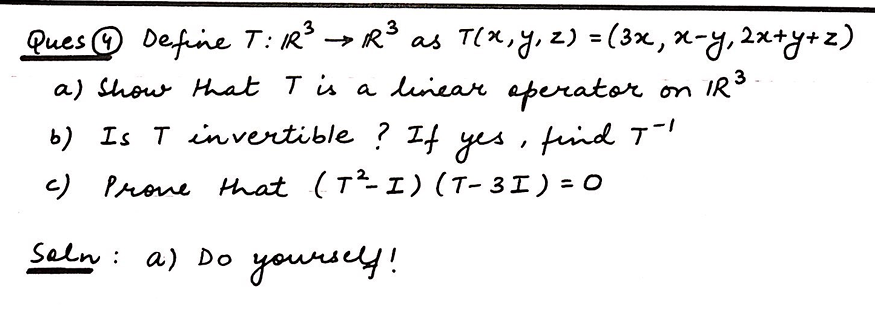 Ques ④ Define T: ℝ³ → ℝ³ as T(x, y, z) = (3x, x-y, 2x+y+z)
a) Show that T is a linear operator on ℝ³
b) Is T invertible ? If yes, find T⁻¹
c) Prove that (T²-I)(T-3I) = 0
Soln : a) Do yourself!